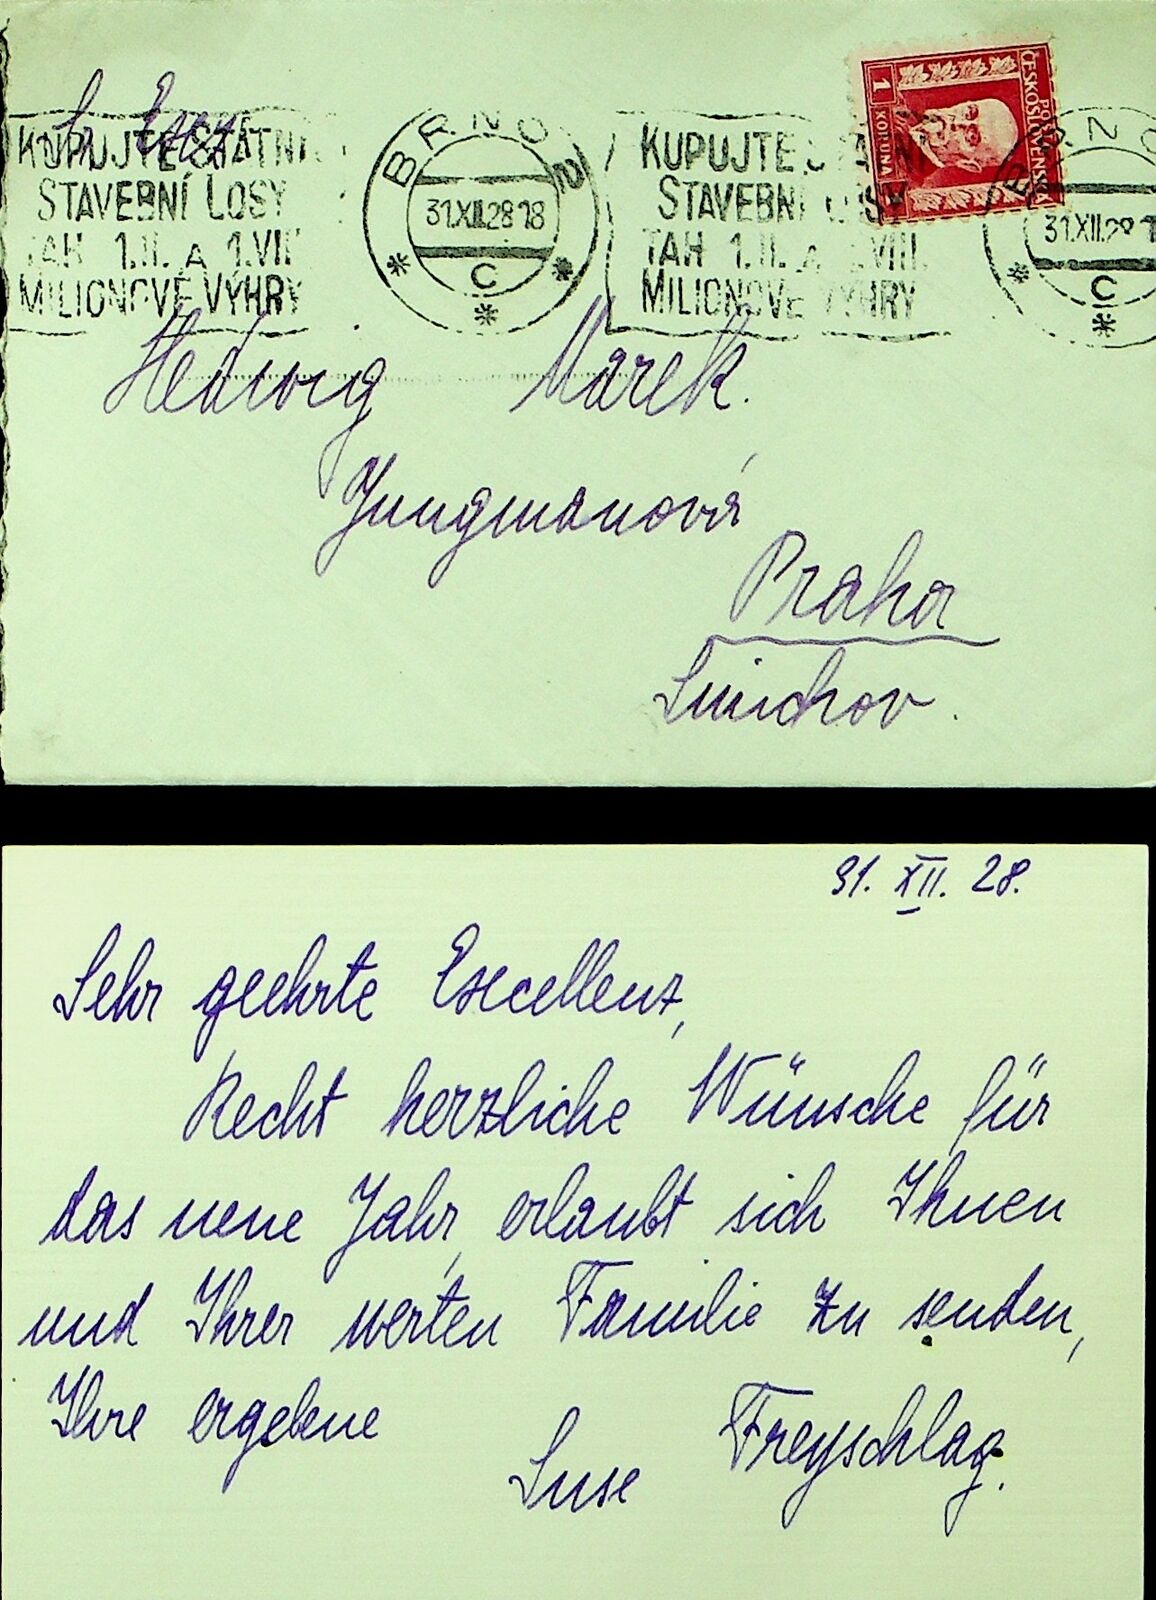 KUPUJTE STÁTNÍ
STAVEBNÍ LOSY
TAH 1.II. A 1.VIII.
MILIONOVÉ VÝHRY
BRNO 2
31.XII.28 18
C
KUPUJTE STÁTNÍ
STAVEBNÍ LOSY
TAH 1.II. A 1.VIII.
MILIONOVÉ VÝHRY
POŠTA
ČESKOSLOVENSKÁ
1 KORUNA
BRNO
31.XII.28
C
Hedwig Marek.
Jungmanová
Praha
Smichov.
31. XII. 28.
Sehr geehrte Exscellenz,
Recht herzliche Wünsche für
das neue Jahr, erlaubt sich Ihnen
und Ihrer werten Familie zu senden,
Ihre ergebene
Suse Freyschlag.